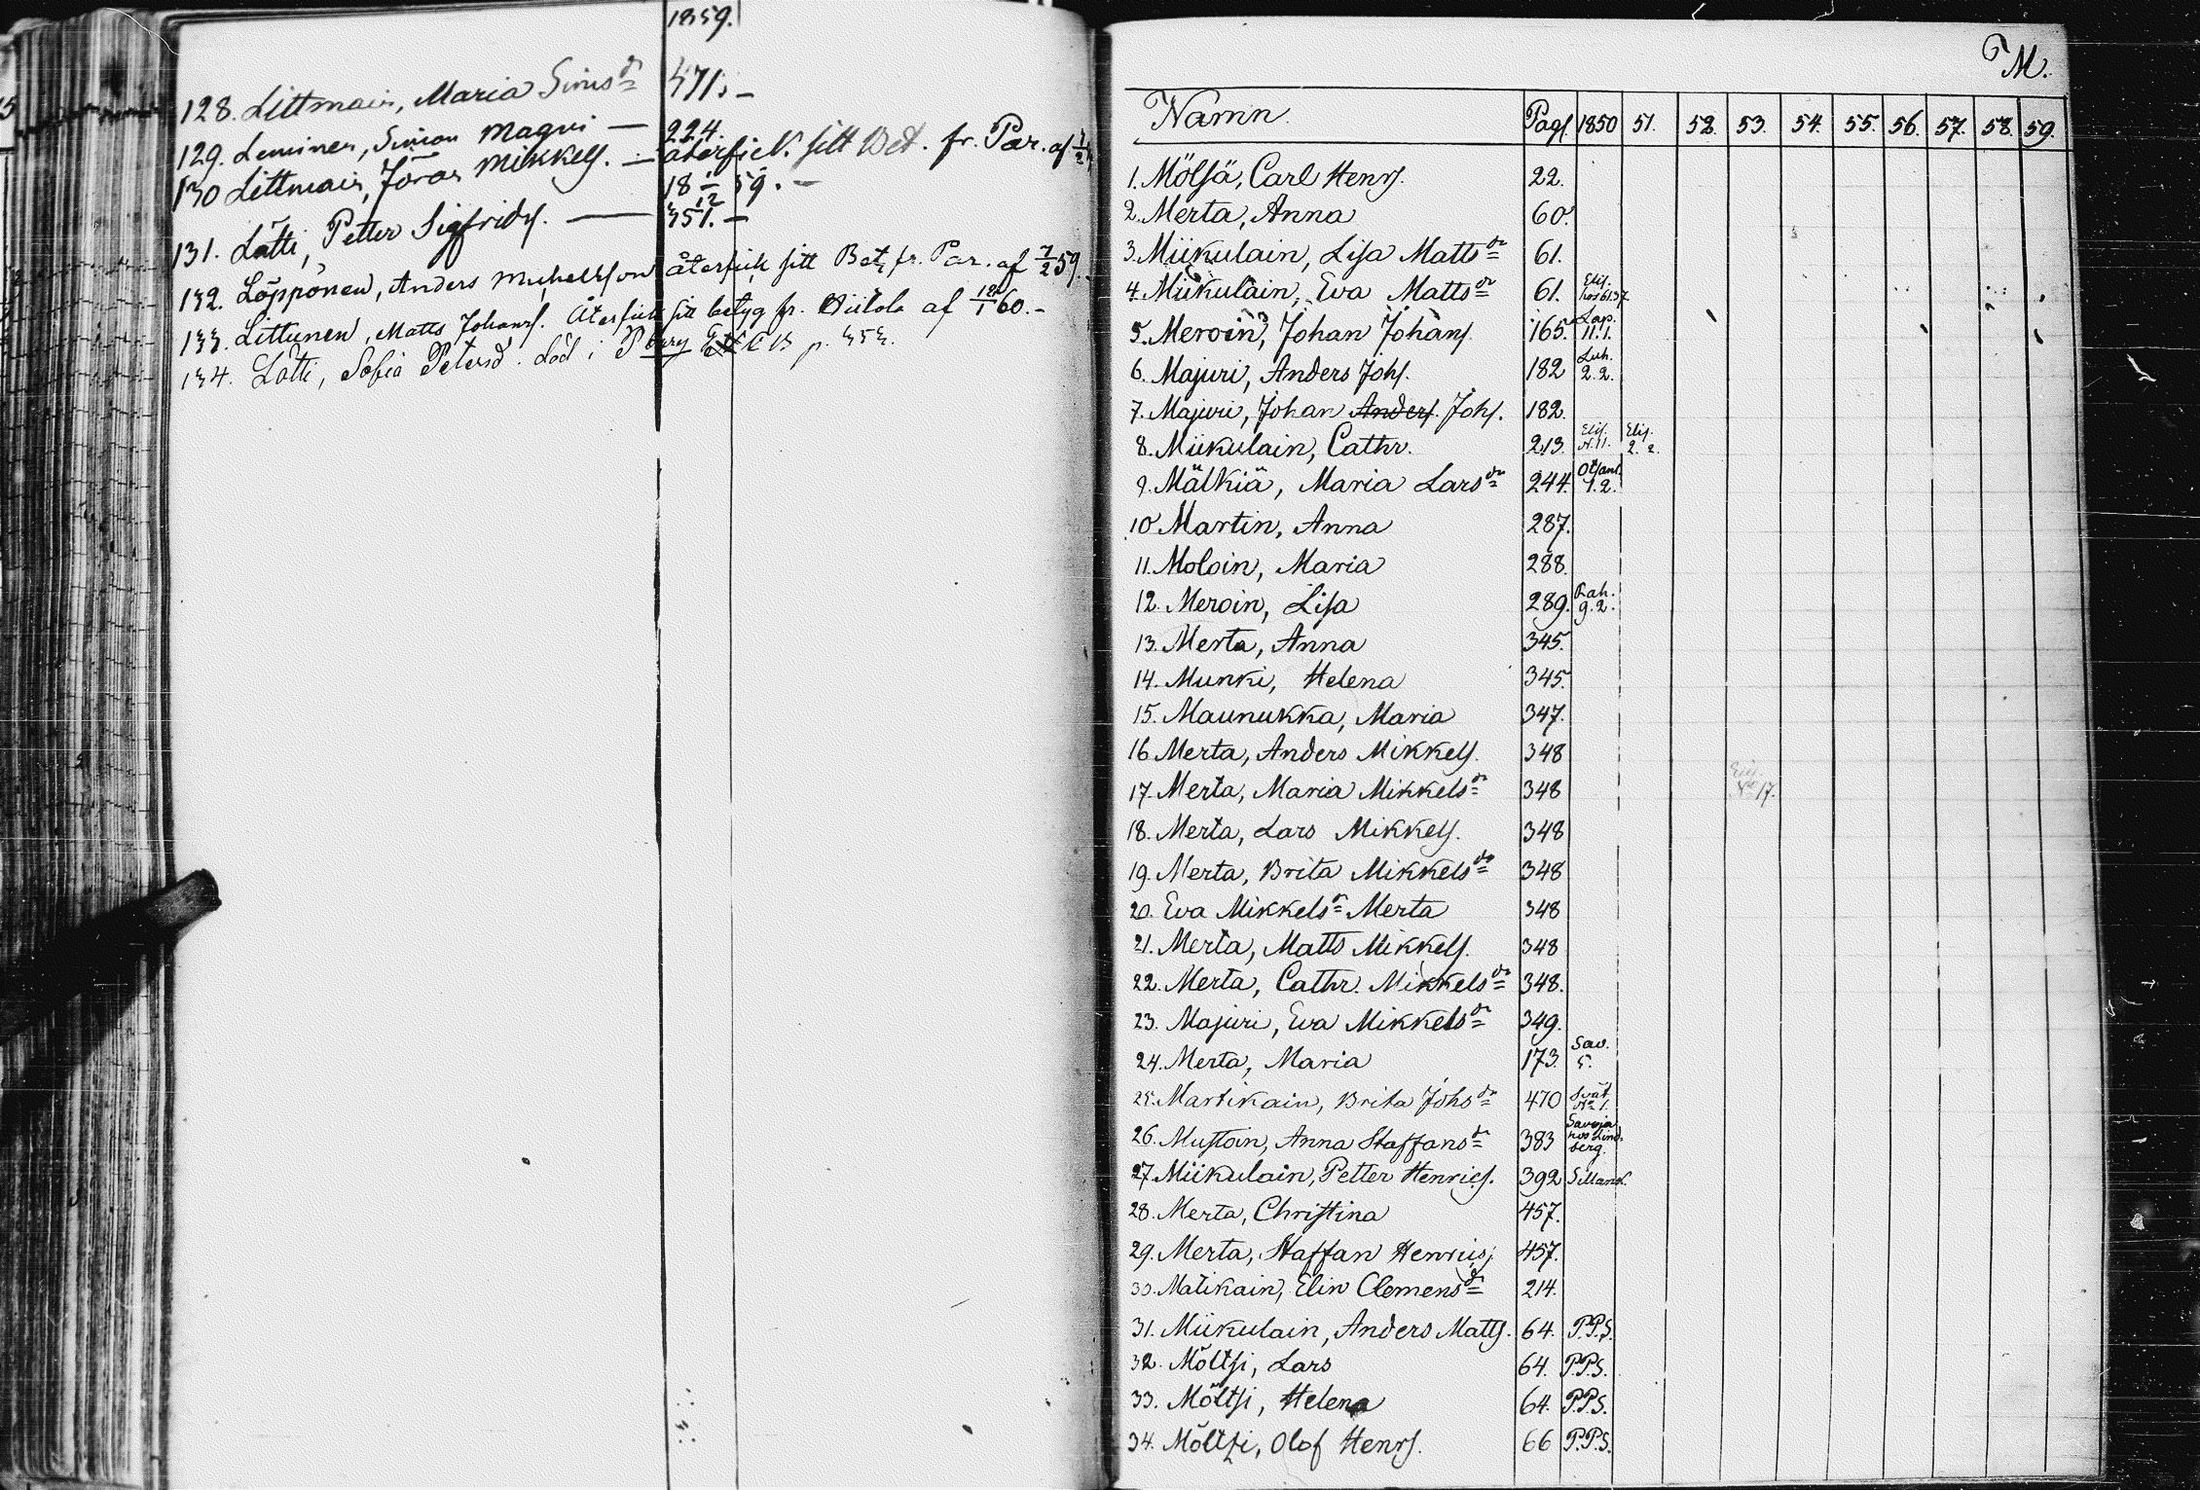 1859.
128. Littmain, Maria Simsdr 471. –
129. Leminen, Simon Magni — 224.
130 Littmain, Jöran Mikkels. — återfick sitt Bet. fr. Par. af
18 1/12 59. –
131. Lätti, Petter Sigfrids. — 451. –
132. Löppönen, Anders Michelsson återfick sitt Bet. fr. Par. af 7/2 59.
133. Littunen, Matts Johans. Återfick sitt betyg fr. Hiitola af 12/1 60. –
134. Lätti, Sofia Petersd. död i p. 453.
M.
Namn. Pag. 1850 51. 52. 53. 54. 55. 56. 57. 58. 59.
1. Mölsä, Carl Henrs. 22.
2. Merta, Anna 60.
3. Miikulain, Lisa Mattsdr 61.
4. Miikulain, Eva Mattsdr 61. Elis.
5. Meroin, Johan Johans. 165. Lap. 11.1.
6. Majuri, Anders Johs. 182 Luh. 2.2.
7. Majuri, Johan Anders. Johs. 182.
8. Miikulain, Cathr. 213. Elis. N. 11. Elis. 2. 2.
9. Mälkiä, Maria Larsdr 244. 1.2.
10 Martin, Anna 287.
11. Moloin, Maria 288.
12. Meroin, Lisa 289. Rah. 9.2.
13. Merta, Anna 345.
14. Munki, Helena 345.
15. Maunukka, Maria 347.
16 Merta, Anders Mikkels. 348
17. Merta, Maria Mikkelsdr 348 17.
18. Merta, Lars Mikkels. 348
19. Merta, Brita Mikkelsdr 348
20. Eva Mikkelsdr Merta 348
21. Merta, Matts Mikkels. 348
22. Merta, Cathr. Mikkelsdr 348.
23. Majuri, Eva Mikkelsdr 349.
24. Merta, Maria 173. Sav. 5.
25. Martikain, Brita Johsdr 470 Svät. No 1.
26. Mustoin, Anna Staffansdr 383 Savoja hos Lindberg.
27. Miikulain, Petter Henrics. 392 Sillank.
28. Merta, Christina 457.
29. Merta, Staffan Henrics. 457.
30. Matikain, Elin Clemensdr 214.
31. Miikulain, Anders Matts. 64. P.P.S.
32. Möltsi, Lars 64. P.P.S.
33. Möltsi, Helena 64. P.P.S.
34. Möltsi, Olof Henrs. 66 P.P.S.